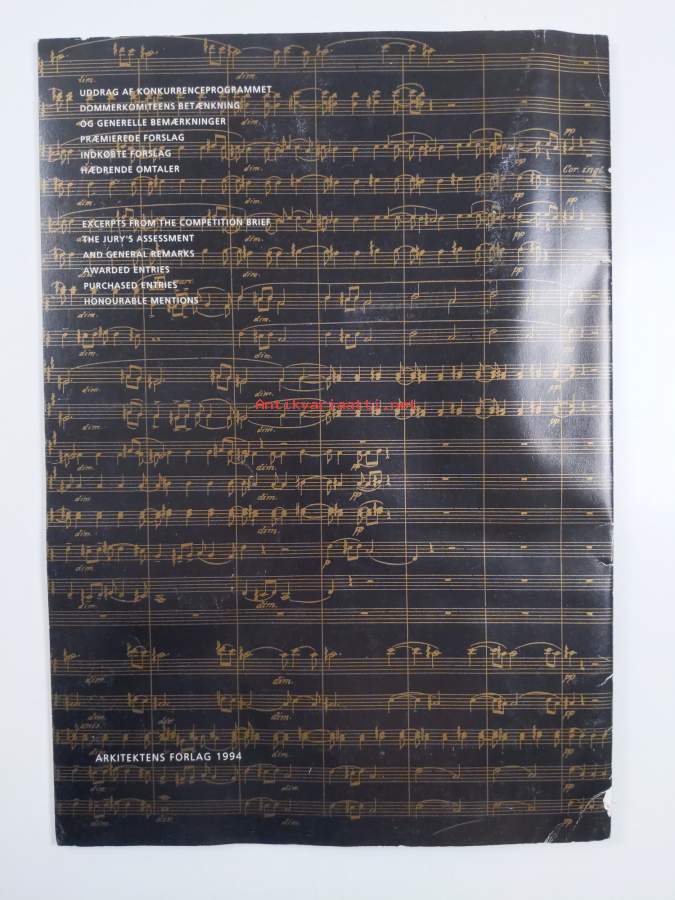 UDDRAG AF KONKURRENCEPROGRAMMET
DOMMERKOMITEENS BETÆNKNING
OG GENERELLE BEMÆRKNINGER
PRÆMIEREDE FORSLAG
INDKØBTE FORSLAG
HÆDRENDE OMTALER
EXCERPTS FROM THE COMPETITION BRIEF
THE JURY'S ASSESSMENT
AND GENERAL REMARKS
AWARDED ENTRIES
PURCHASED ENTRIES
HONOURABLE MENTIONS
Cor. ingl.
Antikvariaatti.net
ARKITEKTENS FORLAG 1994